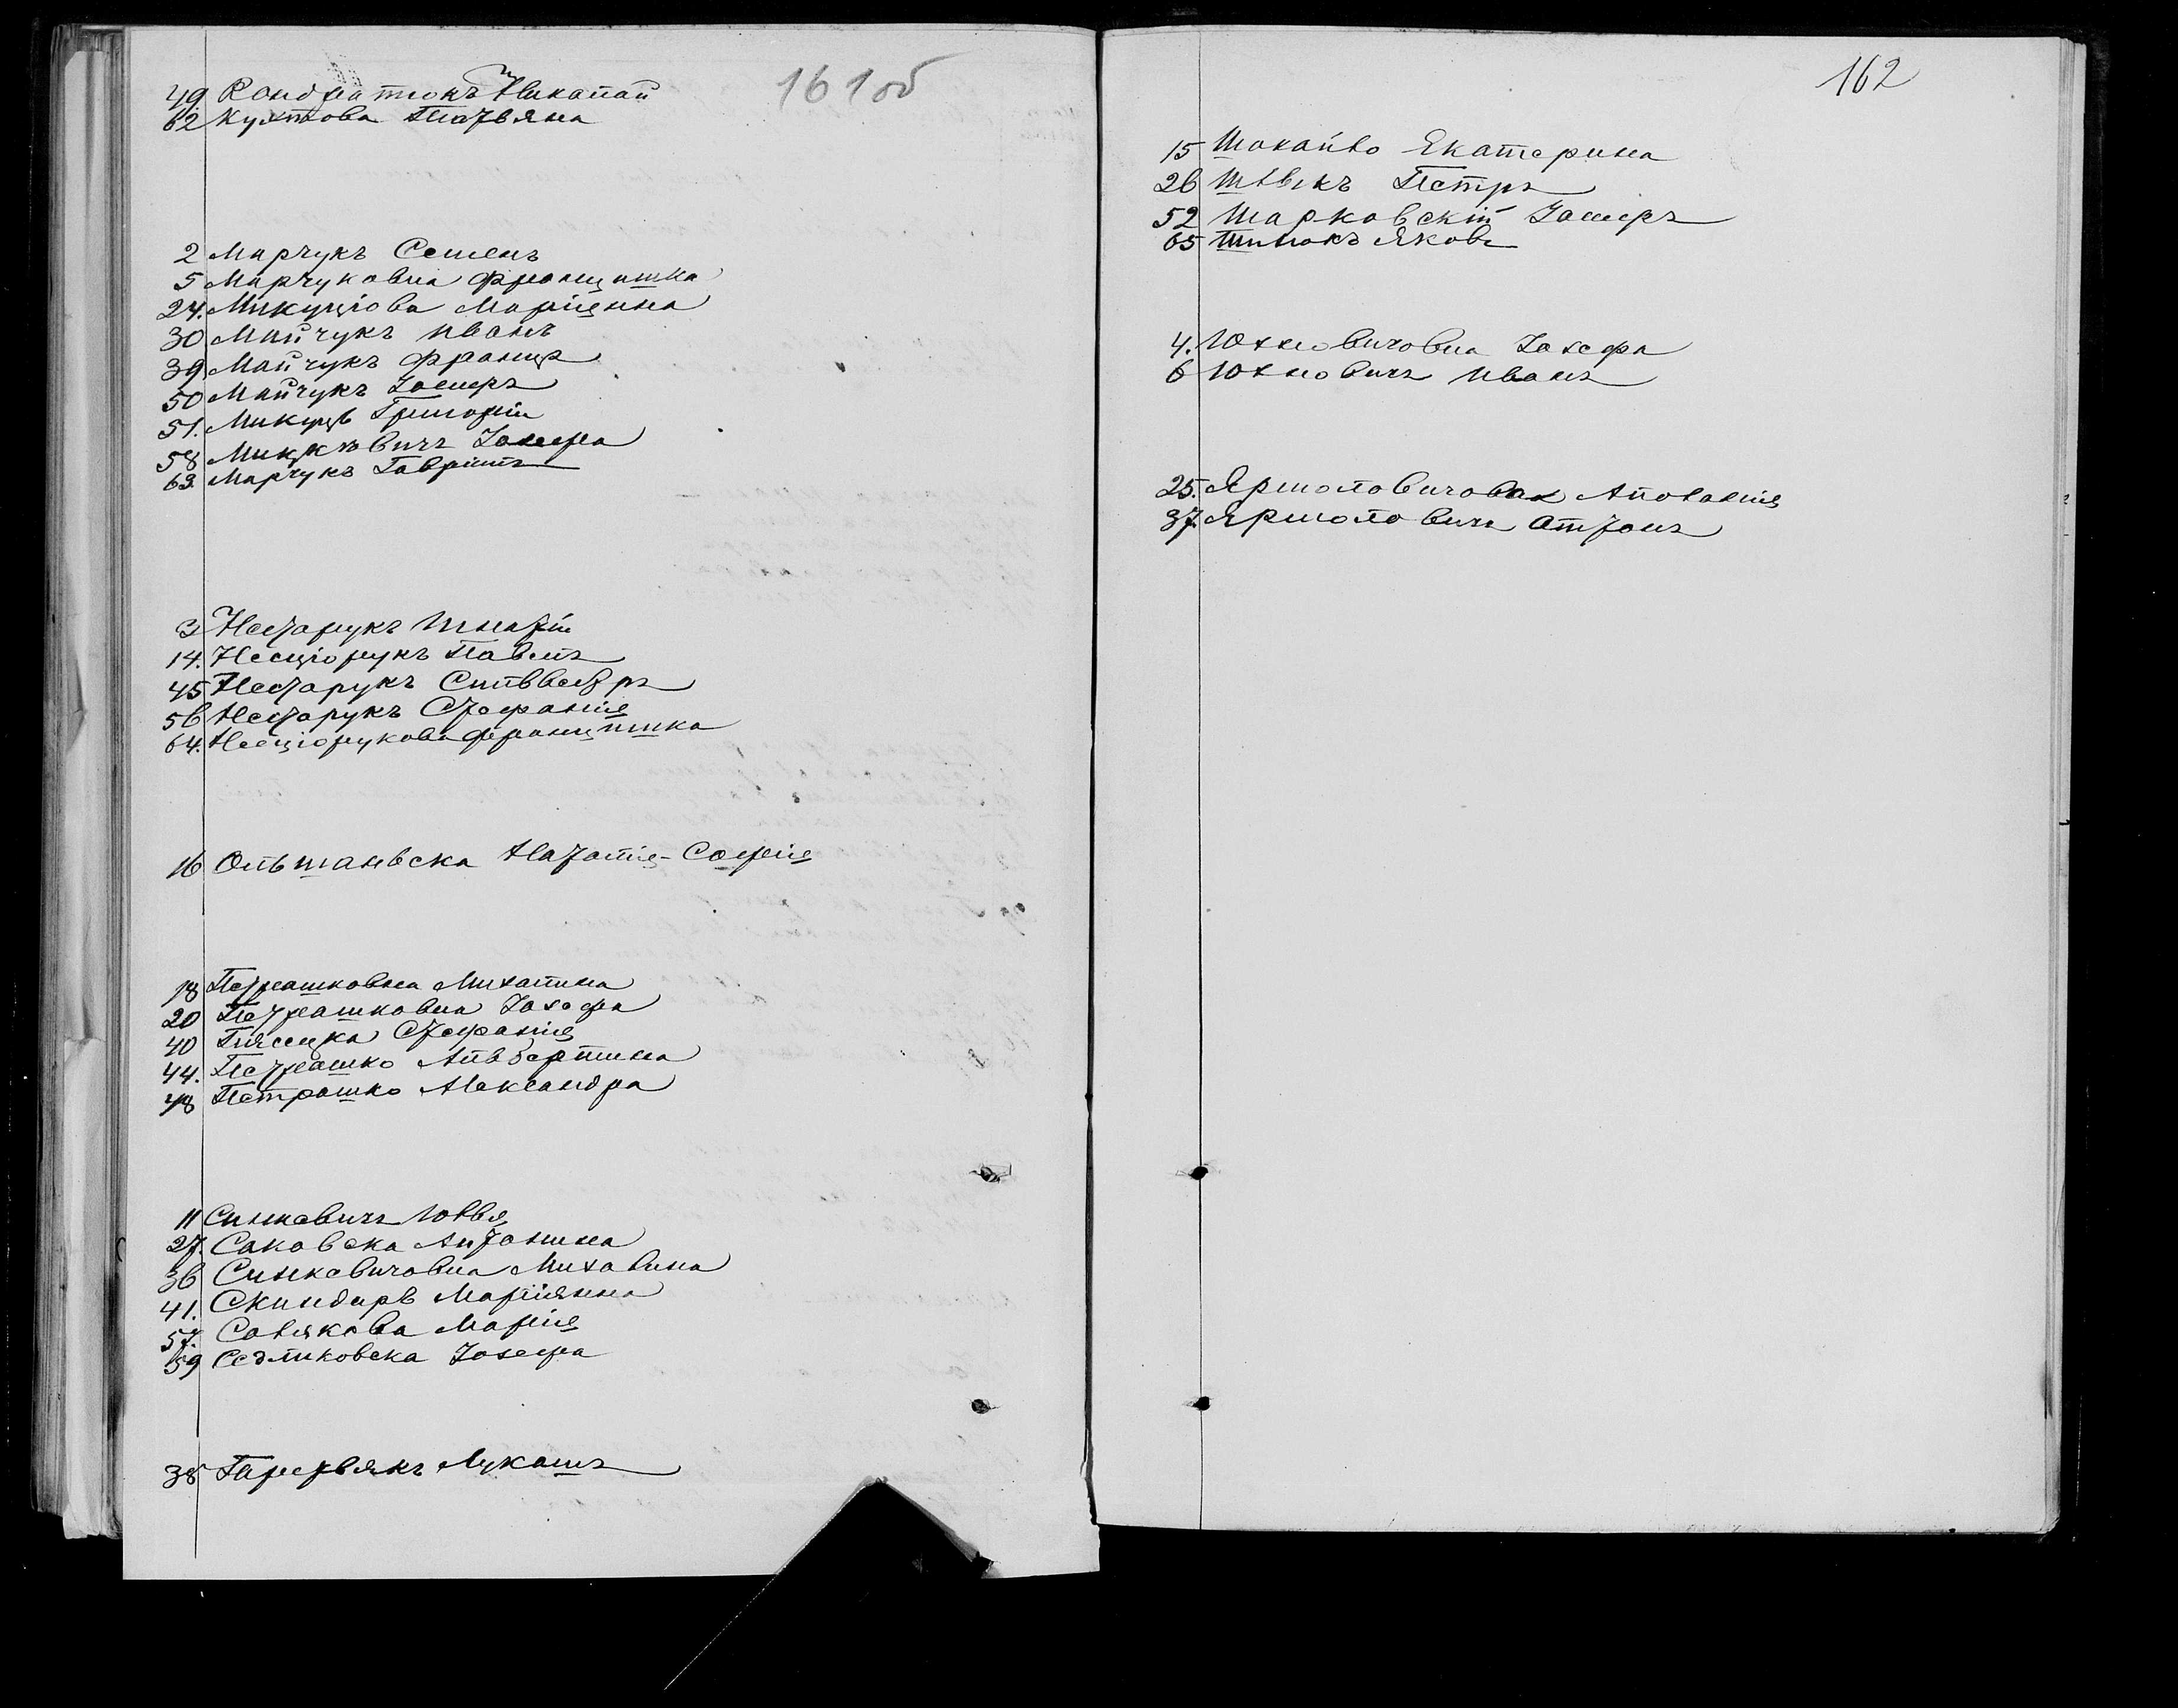 161об
49. Кондратюкъ Николай
62 Култова Татьяна
2 Марчукъ Семенъ
5 Марчуковна Францишка
24. Микуціова Маріянна
30 Майчукъ Иванъ
39. Майчукъ Францъ
50 Майчукъ Іосифъ
51. Микуць Григорій
58 Мицкѣвичъ Іозефа
63. Марчукъ Гавріилъ
3 Нестарукъ Игнатій
14. Несціорукъ Павелъ
45 Нестарукъ Сильвестръ
56 Нестарукъ Стефанія
64. Несціорукова Францишка
16 Ольшаньска Наталія-Софія
18 Петрашковна Михалина
20 Петрашковна Іозефа
40 Пясецка Стефанія
44. Петрашко Альбертина
48 Петрашко Александра
11 Синкевичъ Юзвя
27. Саковска Антонина
36 Синкевичовна Михалина
41. Скиндирь Маріянна
57. Савякова Марія
59 Седликовска Іозефа
38 Лукашъ
162
15 Шокайло Екатерина
26 Петръ
52 Шарковскій Іосифъ
65 Яковъ
4. Юхновичовна Іозефа
6 Юхновичъ Иванъ
25. Ярмоловичовна Аполонія
37. Ярмоловичъ Антонъ